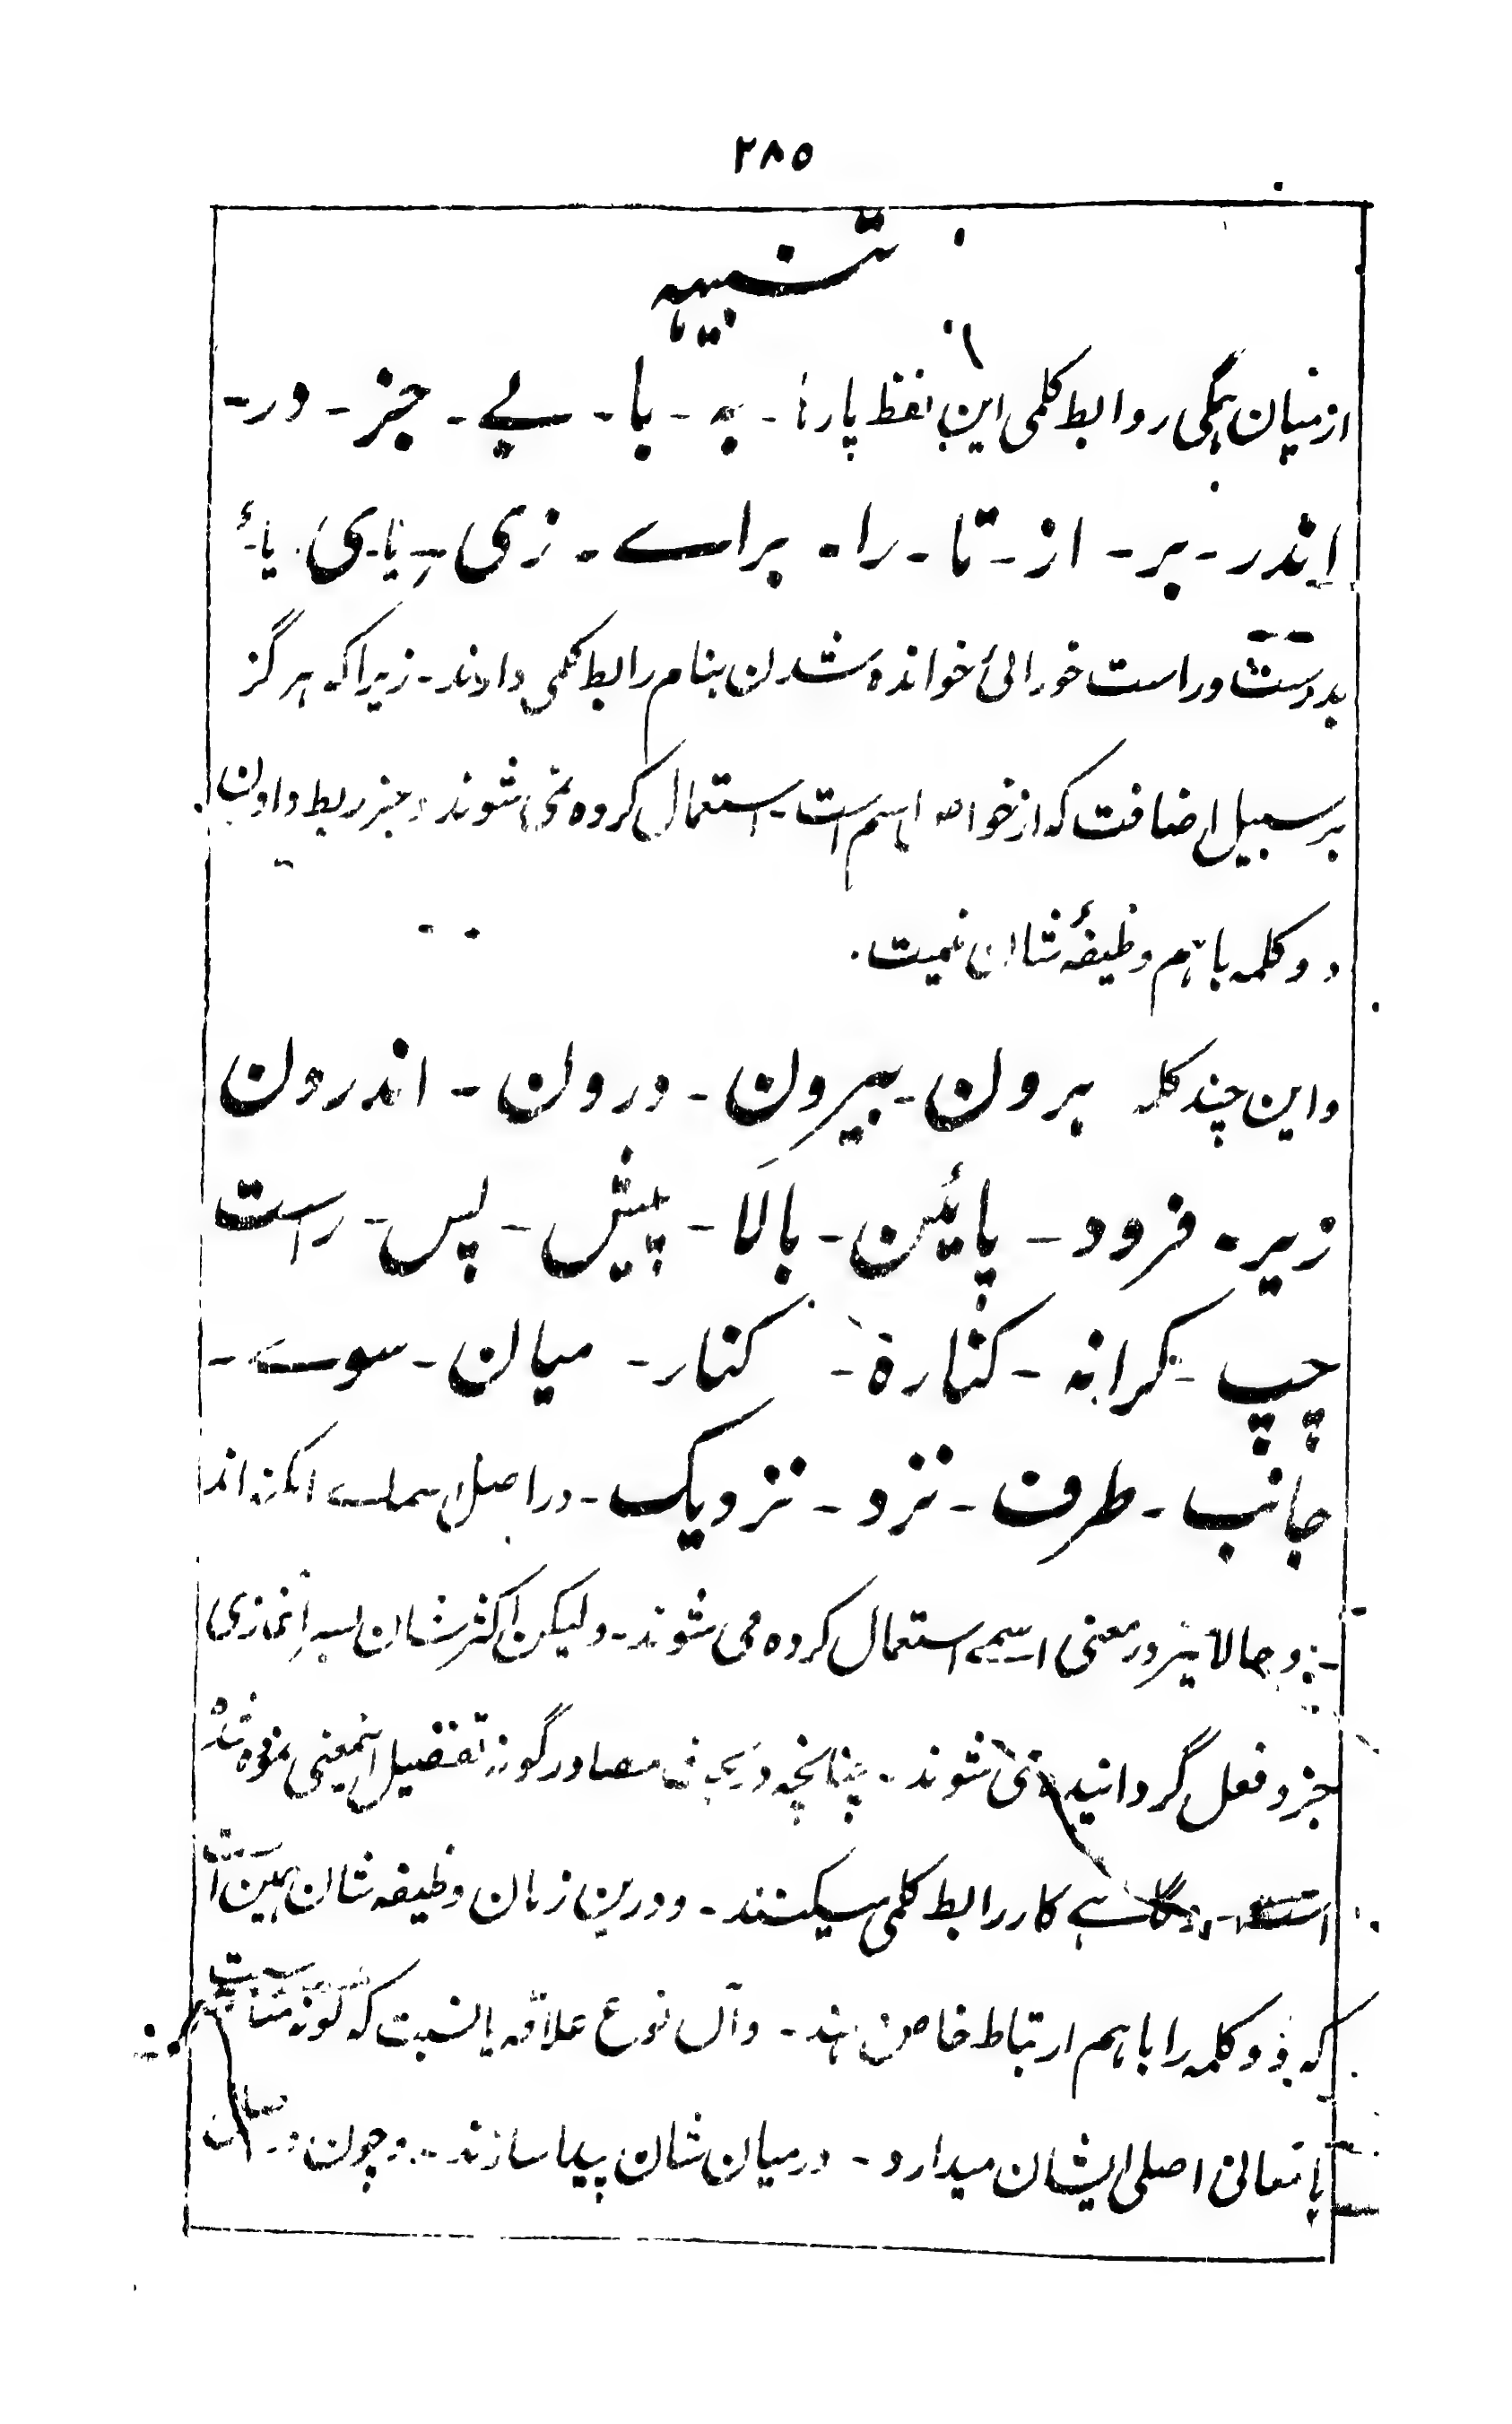 ۲۸۵
تنبیه
ازمیان همگی روابط کلمی این لفظ پارها - به - با - بے - جز - در -
اندر - بر - از - تا - را - براے - زی - یا ی یا ئ
بدرستی و راست خورائی خوانده شدن بنام رابط کلمی دارند - زیراکه هرگز
بر سبیل اضافت که از خواص اسم است - استعمال کرده نمی شوند و جز ربط دادن
دو کلمه باهم وظیفهٔ شان نیست .
و این چند کلمه برون - بیرون - درون - اندرون
زیر - فرود - پائین - بالا - پیش - پس - راست
چپ - کرانه - کناره - کنار - میان - سوے -
جانب - طرف - نزد - نزدیک - در اصل اسماے امکنه اند
و حالا نیز در معنی اسمی استعمال کرده می شوند - ولیکن اکثر شان بسر آغازی
جزو فعل گردانیده می شوند - چنانچه در بحث مصادر گونه تفصیل اینمعنی نموده شده
است - و گاہے کار رابط کلمی میکنند - و درین زمان وظیفه شان همین است
که دو کلمه را باهم ارتباط خاص دهند - و آن نوع علاقه یا نسبت که گونه مناسبت
با معانی اصلی ایشان میدارد - درمیان شان پیدا سازند - و چون